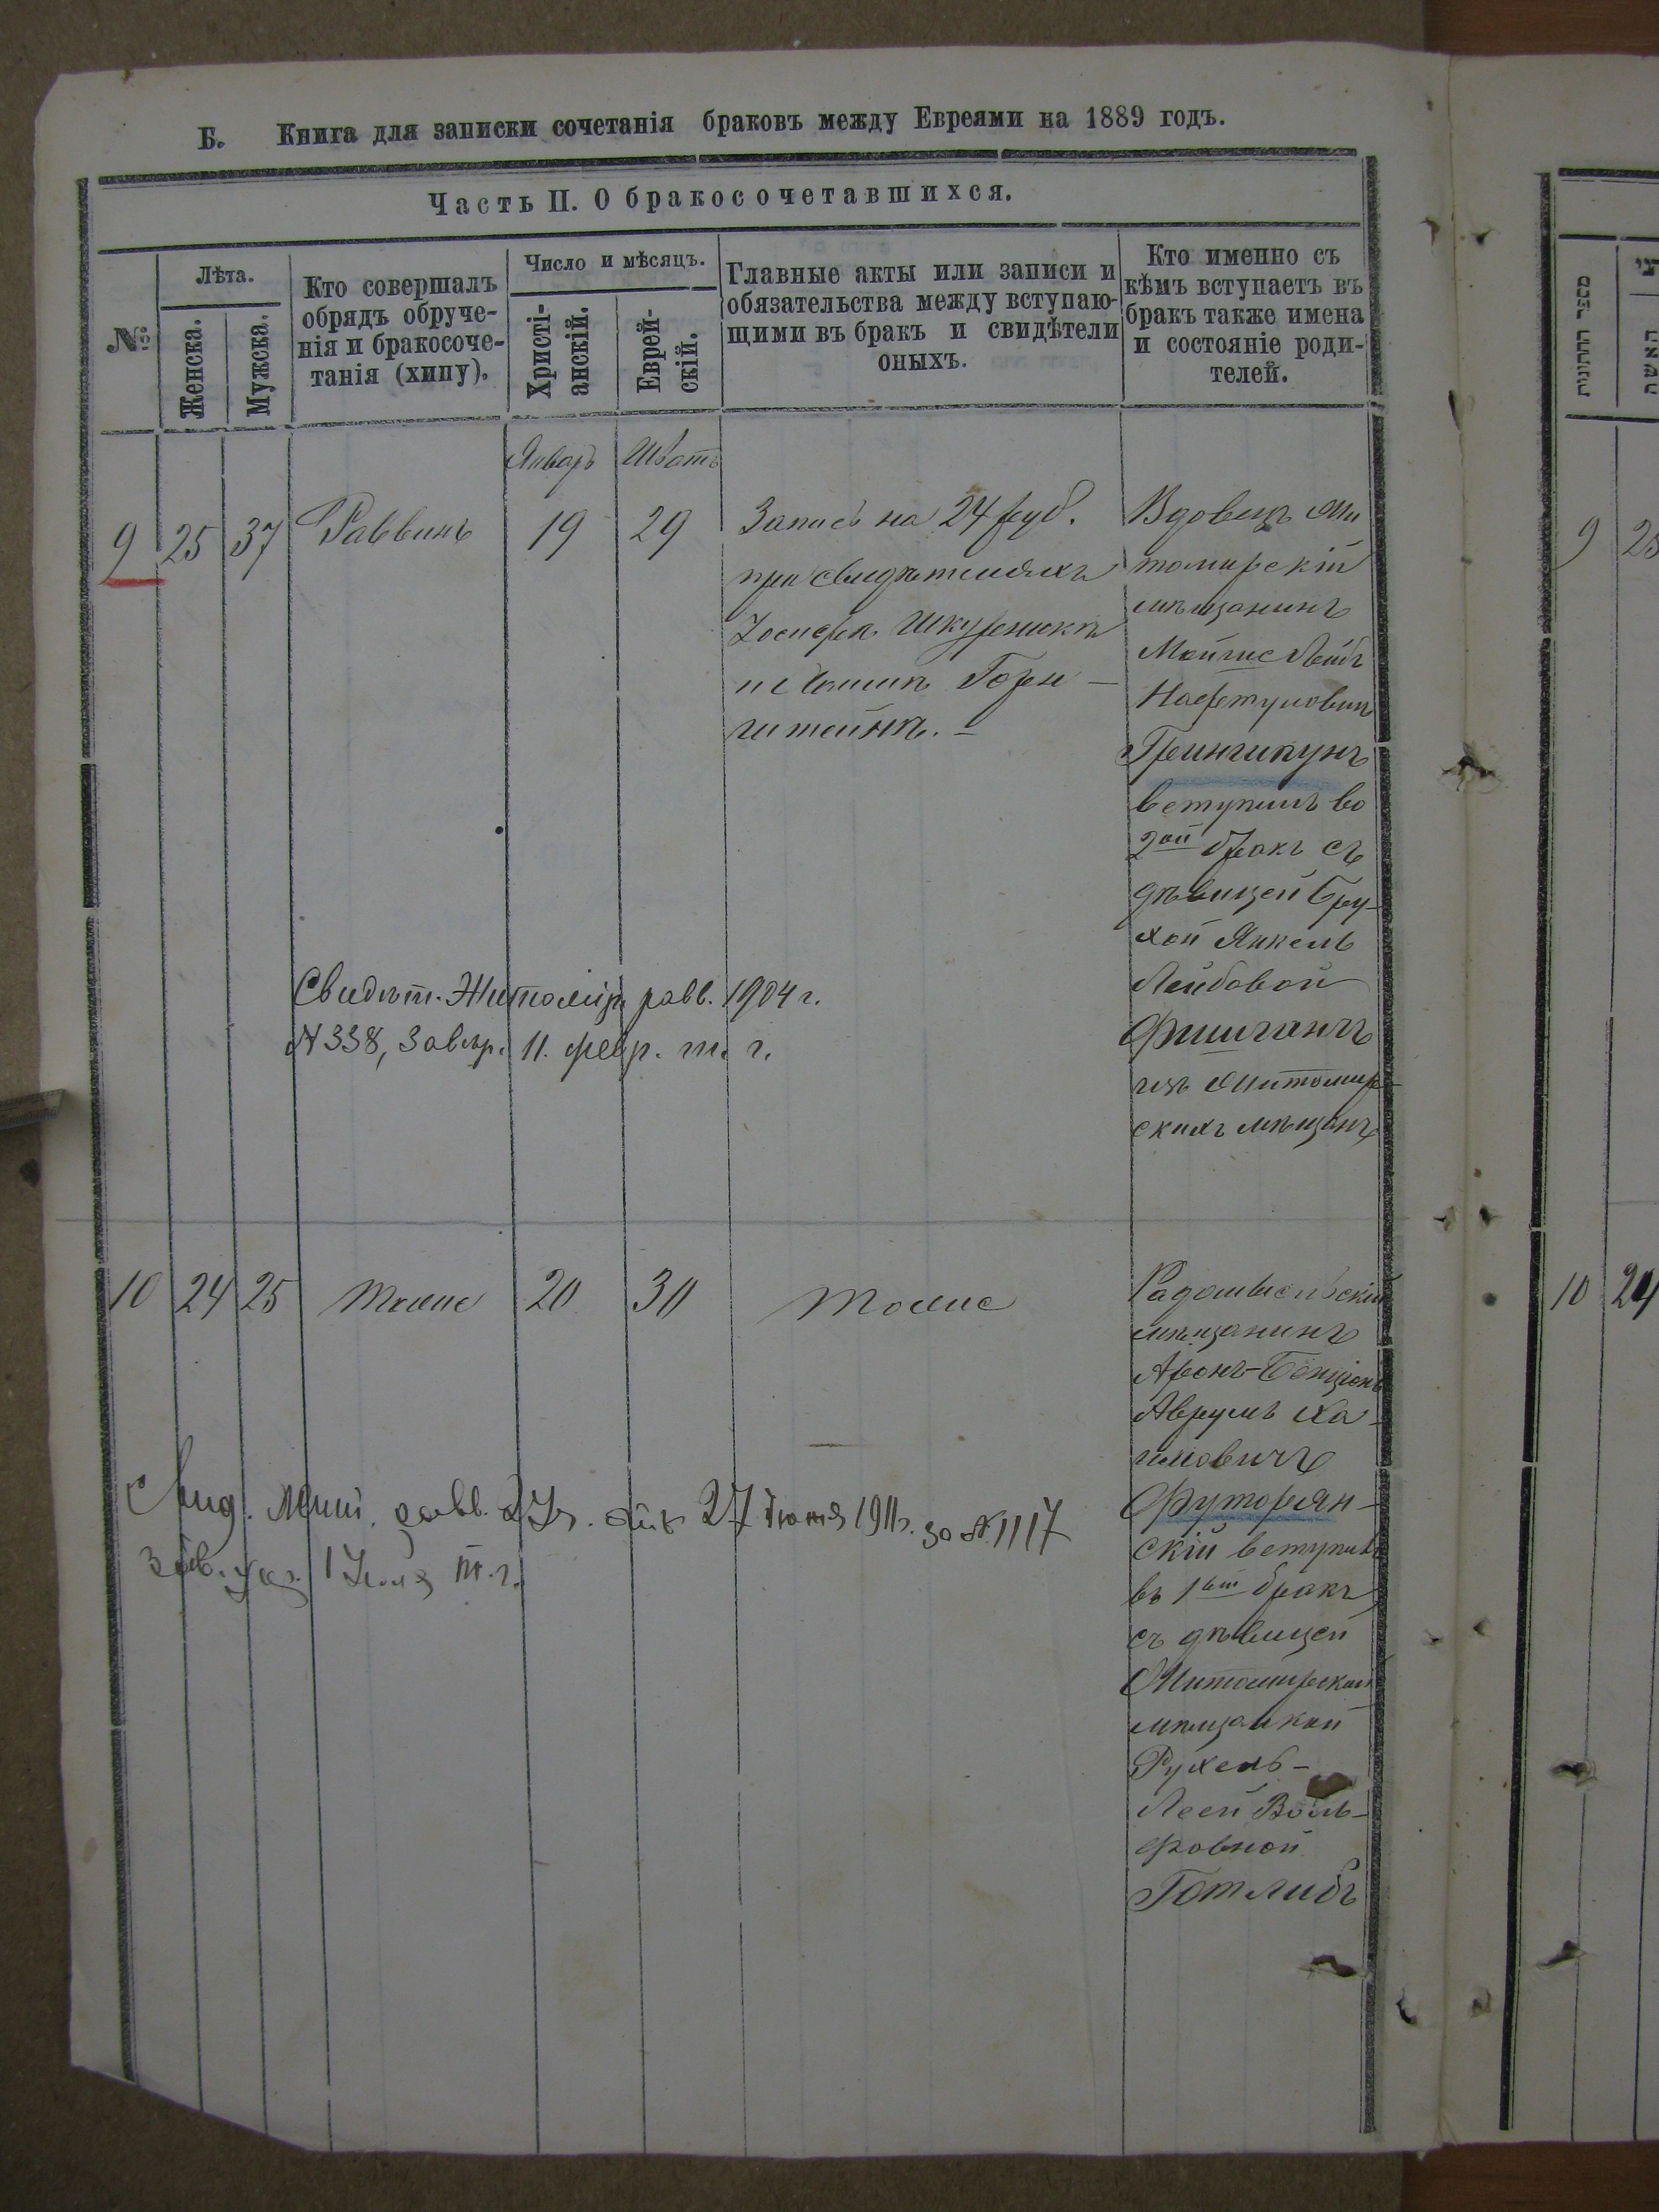 Б. Книга для записки сочетанія браковъ между Евреями на 1889 годъ.
Часть II. О бракосочетавшихся.
№
Лѣта.
Женска.
Мужска.
Кто совершалъ
обрядъ обруче-
нія и бракосоче-
танія (хипу).
Число и мѣсяцъ.
Христі-
анскій.
Еврей-
скій.
Главные акты или записи и
обязательства между вступаю-
щими въ бракъ и свидѣтели
оныхъ.
Кто именно съ
кѣмъ вступаетъ въ
бракъ также имена
и состояніе роди-
телей.
Январь
Шватъ
9
25
37
Раввинъ
19
29
Запись на 24 руб.
при свидѣтеляхъ
Іосифѣ
и Горен-
штейнѣ.
Вдовецъ Жи
томирскій
мѣщанинъ
Лейбъ
Нафтулович
вступилъ во
2ой бракъ съ
дѣвицей Бру-
хой Янкель
Лейбовой
Фишганъ
изъ Житомир-
скихъ мѣщанъ
Свидѣт. Житомір. равв. 1904 г.
№ 338, Завѣр. 11. февр. т. г.
10
24
25
Тоже
20
30
Тоже
Радомысльскій
мѣщанинъ
Аронъ-Бенціонъ
Аврумъ Ха-
имовичъ
Футорян-
скій вступилъ
въ 1ый бракъ
съ дѣвицей
Житомирской
мѣщанкой
Рухель-
Леей Воль-
фовной
Готлибъ
Свид. равв. 27 Іюня 1911 г. за № 1117
1 Іюля т. г.
מספר החתונות
האשה
9
25
10
24